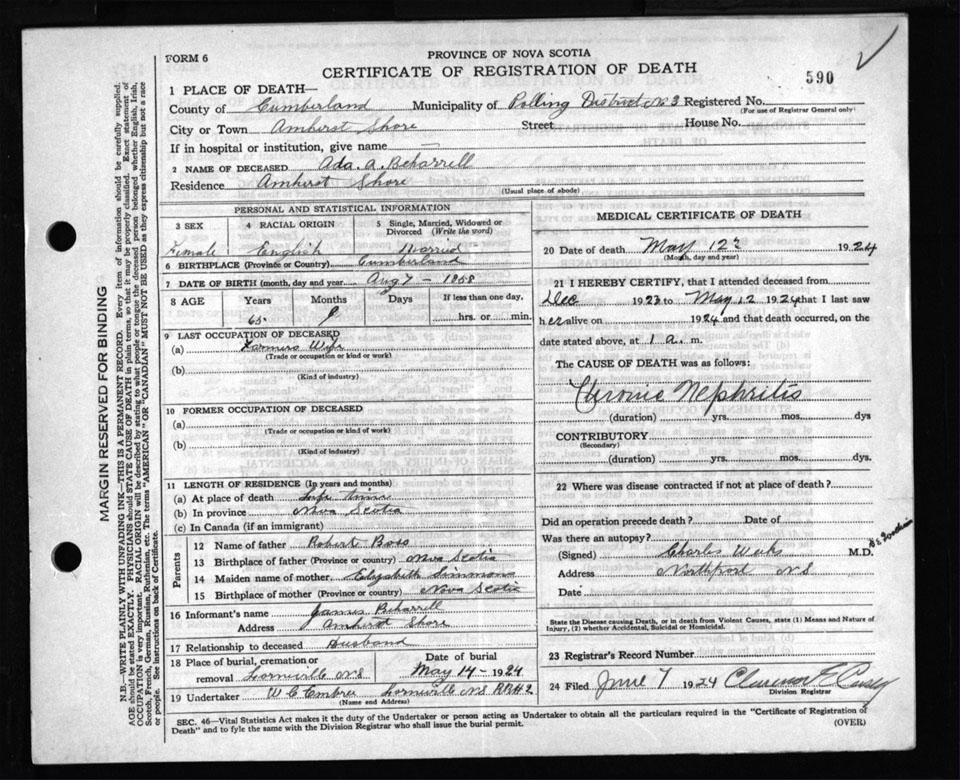 FORM 6
PROVINCE OF NOVA SCOTIA
CERTIFICATE OF REGISTRATION OF DEATH
590
1 PLACE OF DEATH—
County of Cumberland Municipality of Polling District No 3 Registered No.
(For use of Registrar General only)
City or Town Amherst Shore Street House No.
If in hospital or institution, give name —
2 NAME OF DECEASED Ada. A. Beharrell
Residence Amherst Shore
(Usual place of abode)
PERSONAL AND STATISTICAL INFORMATION
3 SEX 4 RACIAL ORIGIN 5 Single, Married, Widowed or Divorced (Write the word)
Female English Married
6 BIRTHPLACE (Province or Country) Cumberland
7 DATE OF BIRTH (month, day and year) Aug 7 - 1858
8 AGE Years Months Days If less than one day,
65 9 hrs. or min.
9 LAST OCCUPATION OF DECEASED
(a) Farmers Wife
(Trade or occupation or kind of work)
(b)
(Kind of industry)
10 FORMER OCCUPATION OF DECEASED
(a)
(Trade or occupation or kind of work)
(b)
(Kind of industry)
11 LENGTH OF RESIDENCE (In years and months)
(a) At place of death Life time
(b) In province Nova Scotia
(c) In Canada (if an immigrant)
Parents
12 Name of father Robert Ross
13 Birthplace of father (Province or country) Nova Scotia
14 Maiden name of mother Elizabeth Simmons
15 Birthplace of mother (Province or country) Nova Scotia
16 Informant's name James Beharrell
Address Amherst Shore
17 Relationship to deceased Husband
18 Place of burial, cremation or removal Lornville N S Date of burial May 14 - 1924
19 Undertaker W C Embree Lornville N S R R # 2
(Name and Address)
MEDICAL CERTIFICATE OF DEATH
20 Date of death May 12 1924
(Month, day and year)
21 I HEREBY CERTIFY, that I attended deceased from
Dec 1923 to May 12 1924 that I last saw
her alive on 1924 and that death occurred, on
the date stated above, at 1 a. m.
The CAUSE OF DEATH was as follows:
Chronic Nephritis
(duration) yrs. mos. dys
CONTRIBUTORY
(Secondary)
(duration) yrs. mos. dys
22 Where was disease contracted if not at place of death?
Did an operation precede death? Date of
Was there an autopsy?
(Signed) Charles Weeks M.D.
Address Northport N S
Date
State the Disease causing Death, or in death from Violent Causes, state (1) Means and Nature of
Injury, (2) whether Accidental, Suicidal or Homicidal.
23 Registrar's Record Number
24 Filed June 7 1924 Clarence E
Division Registrar
SEC. 46—Vital Statistics Act makes it the duty of the Undertaker or person acting as Undertaker to obtain all the particulars required in the "Certificate of Registration of
Death" and to fyle the same with the Division Registrar who shall issue the burial permit. (OVER)
MARGIN RESERVED FOR BINDING
N.B.—WRITE PLAINLY WITH UNFADING INK—THIS IS A PERMANENT RECORD. Every item of information should be carefully supplied.
AGE should be stated EXACTLY. PHYSICIANS should STATE CAUSE OF DEATH in plain terms, so that it may be properly classified. Exact statement of
OCCUPATION is very important. RACIAL ORIGIN will be described by stating to what people or tongue the deceased person belonged whether English, Irish,
Scotch, French, German, Russian, Ruthenian, etc. The terms "AMERICAN" OR "CANADIAN" MUST NOT BE USED as they express citizenship but not a race
or people. See instructions on back of Certificate.